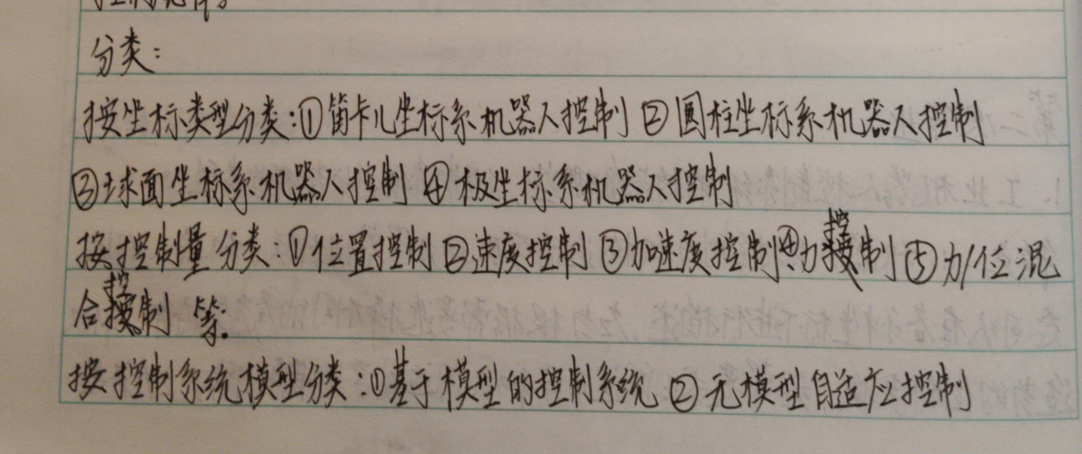 分类:
按坐标类型分类:①笛卡儿坐标系机器人控制 ②圆柱坐标系机器人控制
③球面坐标系机器人控制 ④极坐标系机器人控制
按控制量分类:①位置控制 ②速度控制 ③加速度控制 ④力控制 ⑤力/位混
合控制 等.
按控制系统模型分类:①基于模型的控制系统 ②无模型自适应控制